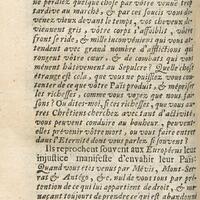 ne perdiez quelque chose par votre venuë trop
tardive au marché, & par ces soucis vous de-
venez vieux devant le temps, vos cheveux de-
viennent gris, vôtre corps s'affoiblit, vôtre
front se ride, & mille inconveniens qui vous at-
tendent avec grand nombre d'afflictions qui
rongent vôtre cœur, & de combats qui vous
mènent hâtivement au Sepulcre? Quelle chose
étrange est cela, que vous ne puissiez vous con-
tenter de ce que vôtre Païs produit, & mépriser
les richesses, comme vous voyez que nous fai-
sons? Ou dites-moi, si ces richesses, que vous au-
res Chrêtiens cherchez avec tant d'activité,
vous peuvent conduire au bonheur, peuvent-
elles prévenir vôtre mort, ou vous faire entrer
dans l'Eternité dont vous parlez si souvent?
Ils reprochent souvent aux Européens leur
injustice manifeste d'envahir leur Païs
Quand vous êtes venus par Métiu, Mant-Ser-
rat & Antégo, &c. nul de vous tout par pré-
tention de ce qui lui appartient de droit, & me-
naçant toujours de prendre ce qui est abandonné